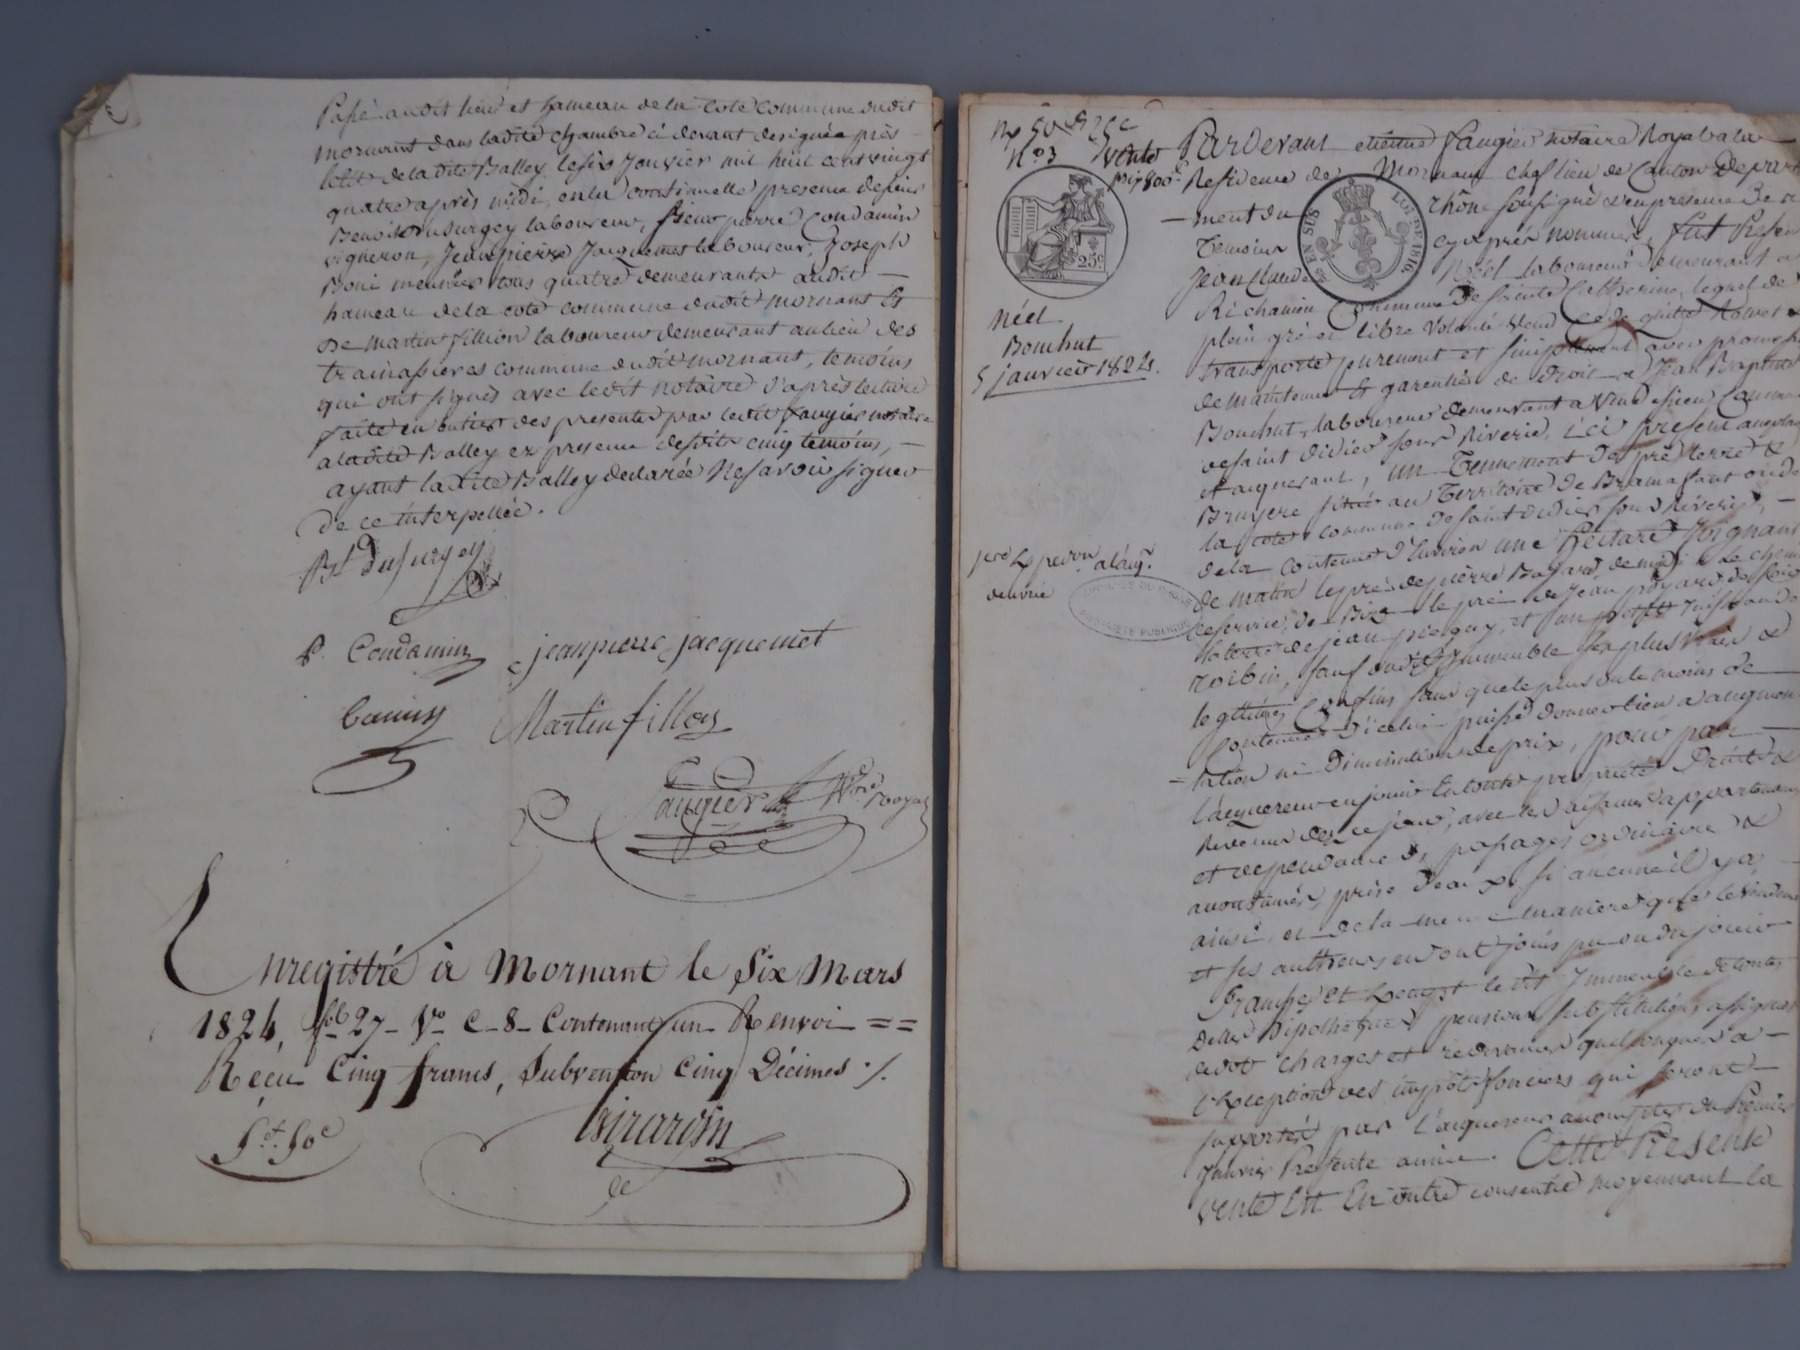 Passé audit lieu et hameau de la Cote commune dudit
mornant dans ladite chambre ci devant designée près
le lit de la dite Balley le six Janvier mil huit cent vingt
quatre après midi, en la continuelle presence de sieur
Benoit Dusurgey laboureur, sieur pierre Condamin
vigneron, Jean pierre Jacquemet laboureur, Joseph
tous quatre demeurants audit
hameau de la cote commune dudit mornant Et
De Martin fillion laboureur demeurant au lieu des
trainassieres commune dudit mornant, temoins
qui ont signés avec ledit notaire d'après lecture
faite en entier des presentes par ledit faugier notaire
a ladite Balley en presence desdits cinq temoins,
ayant ladite Balley declarée ne savoir signer
de ce interpellée.
Bt dusurgey
P. Condamin jeanpierre jacquemet
Martin fillon
faugier Nre royal
Enregistré à Mornant le Six Mars
1824, fol 27 Vo C 8 Contenant un Renvoi ==
Reçu Cinq francs, Subvention Cinq Décimes ./.
5f. 50c
Girardon
No 3 Vente
25c
néel
Bouchut
5 janvier 1824.
Pardevant etienne faugier notaire Royal a la
Residence de Mornant chef lieu de Canton Depart
ment du Rhône soussigné & en presence de
temoins cy après nommés, fut Present
25 EN SUS LOI DE 1816.
Jean Claude Néel laboureur demeurant a
Richanien Commune de Sainte Catherine, lequel de
plein gré et libre volonté vend Cede quitte Remet &
transporte purement et simplement avec promesse
de maintenue Et garentie de droit a Jean Baptiste
Bouchut, laboureur demeurant a commune
de saint didier sous Riverie, ici present
et acquerant, un Tennement de pré terre &
Bruyere situé au Territoire de Bramafant ou de
la cote commune de saint didier sous Riverie,
de la contenue d'Environ une Hectare Joignant
de matin le pré de pierre Bajard, de midi le chemin
de service, de Bize le pré de Jean
la terre de jean et un petit ruisseau de
sauf dudit Immeuble ses plus vrais &
legitimes Confins sans que le plus ou le moins de
Contenue d'icelui puisse donner lieu a augmen
=tation ni Diminution de prix, pour par
l'acquereur en jouir En toute propriété Droits &
Revenus des ce jour, avec les aisances appartenances
et dependances, passages ordinaire &
accoutumés, prise d'eaux si aucune il y a,
ainsi et de la meme maniere que le Vendeur
et ses autheurs en ont jouis pu ou du jouir
Franche Et Exempt ledit Immeuble de toutes
Dettes hipotheques pensions substitutions
charges et redevances quelconques a
l'exception des impots fonciers qui seront
supportés par l'acquereur a compter du Premier
Janvier Presente année. Cette Presente
vente Est En outre consentie moyennant la